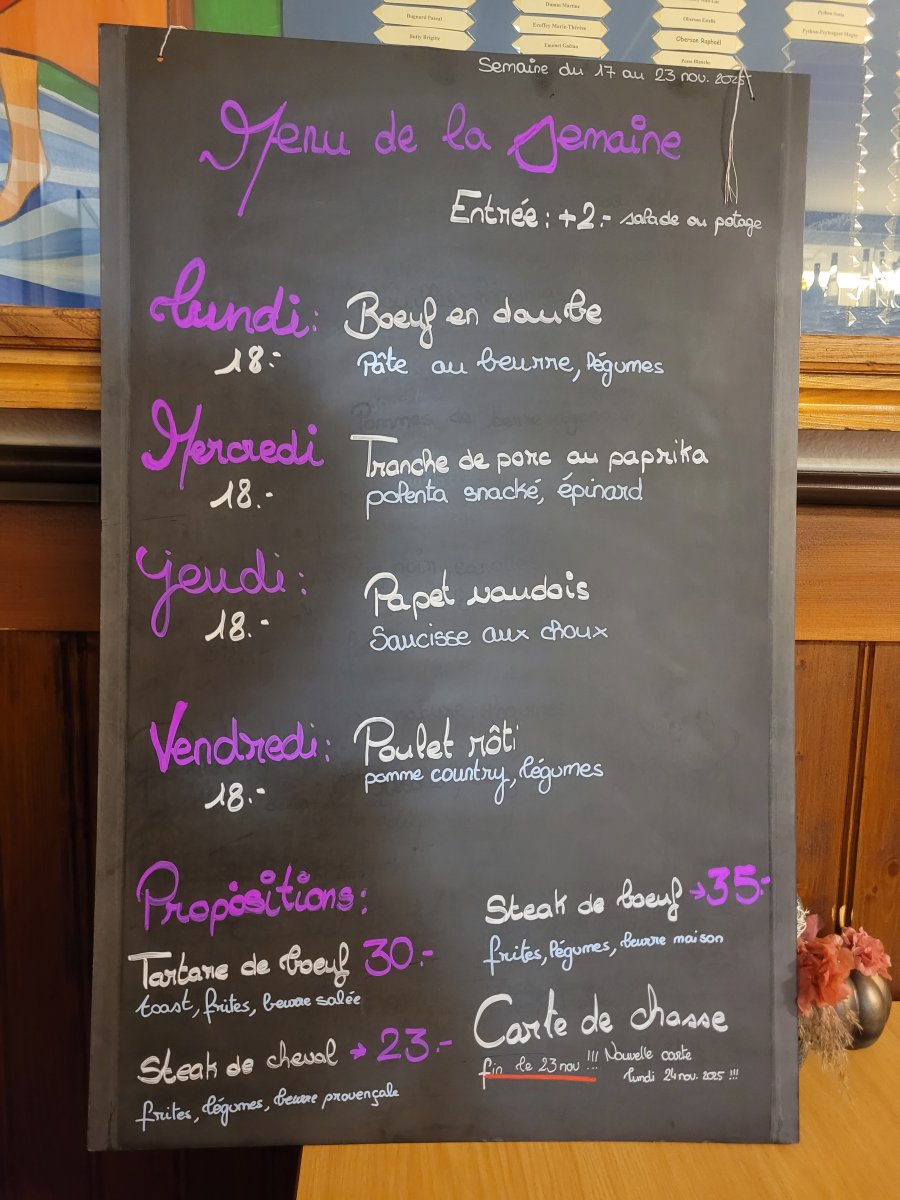 Bugnard Pascal
Butty Brigitte
Dumas Martine
Ecoffey Marie-Thérèse
Emonet Gaëtan
Oberson Estelle
Oberson Raphaël
Python Sonia
Semaine du 17 au 23 nov. 2025
Menu de la Semaine
Entrée: +2.- salade ou potage
Lundi: Boeuf en daube
18.- Pâte au beurre, légumes
Mercredi Tranche de porc au paprika
18.- polenta snacké, épinard
Jeudi: Papet vaudois
18.- Saucisse aux choux
Vendredi: Poulet rôti
18.- pomme country, légumes
Propositions:
Tartare de boeuf 30.-
toast, frites, beurre salée
Steak de cheval → 23.-
frites, légumes, beurre provençale
Steak de boeuf → 35.-
frites, légumes, beurre maison
Carte de chasse
fin le 23 nov !!! Nouvelle carte
lundi 24 nov. 2025 !!!